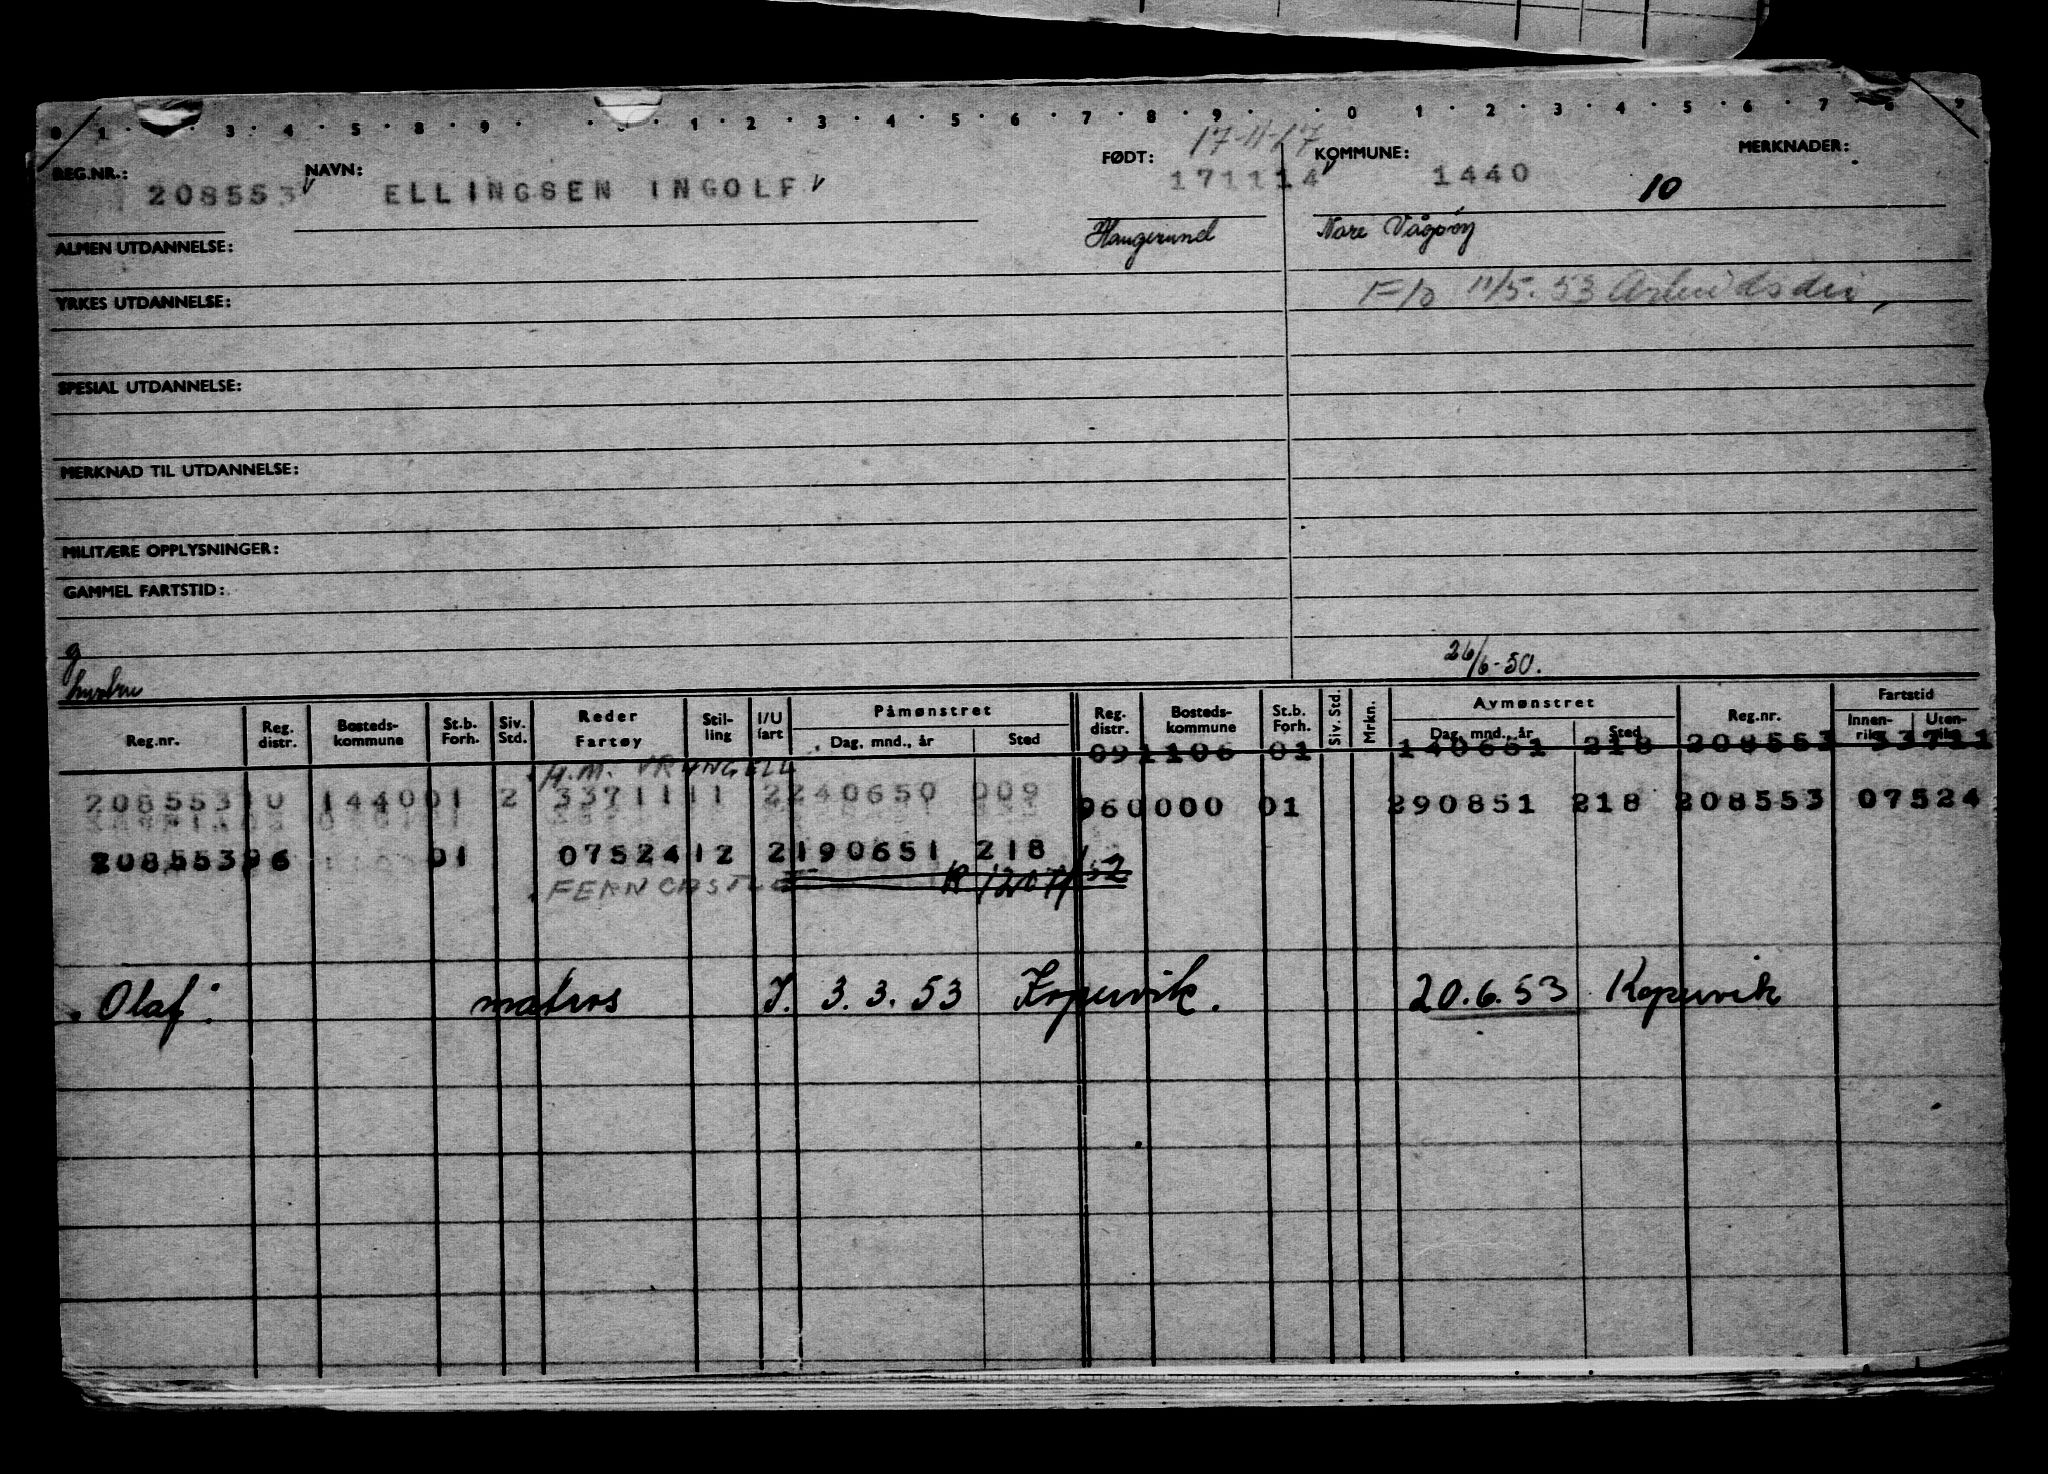 0 1 · 3 · 4 · 5 · 8 · 9 · · · 1 · 2 · 3 · 4 · 5 · 6 · 7 · 8 · 9 · · 0 · 1 · 2 · 3 · 4 · 5 · 6 · 7 · 8 9
REG.NR.: NAVN: FØDT: 17-11-17 KOMMUNE: MERKNADER:
208553 ELLINGSEN INGOLF 171114 1440 10
ALMEN UTDANNELSE: Haugesund Nore Vågsøy
YRKES UTDANNELSE: 11/5.53 Arbeidsdir,
SPESIAL UTDANNELSE:
MERKNAD TIL UTDANNELSE:
MILITÆRE OPPLYSNINGER:
GAMMEL FARTSTID:
g
hustru 26/6-50.
Reg.nr. Reg. distr. Bosteds-kommune St.b. Forh. Siv. Std. Reder Fartøy Stil-ling I/U fart Påmønstret Dag, mnd., år Sted Reg. distr. Bosteds-kommune St.b. Forh. Siv. Std. Mrkn. Avmønstret Dag, mnd., år Sted Reg.nr. Fartstid Innen-riks Uten-riks
091106 01 140651 218 208553 33711
H.M. WRANGELL
208553 10 1440 01 2 33711 11 2 240650 009 960000 01 290851 218 208553 07524
208553 96 01 07524 12 2 190651 218
FERNCASTLE
Olaf matros I. 3.3.53 Kopervik. 20.6.53 Kopervik